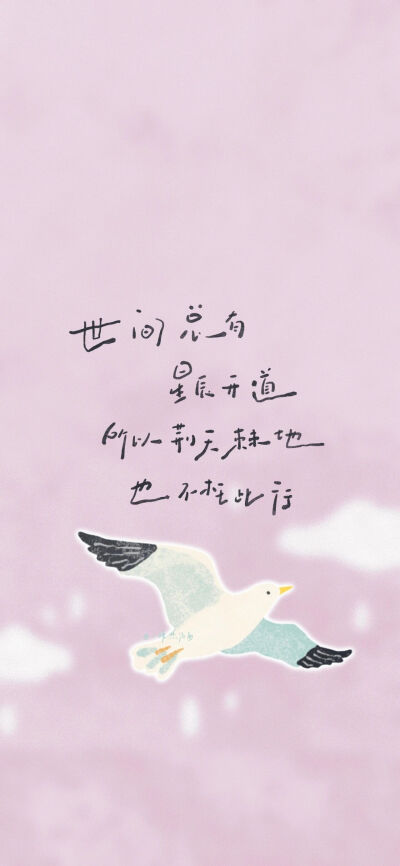 世间总有
星辰开道
所以荆天棘地
也不枉此行